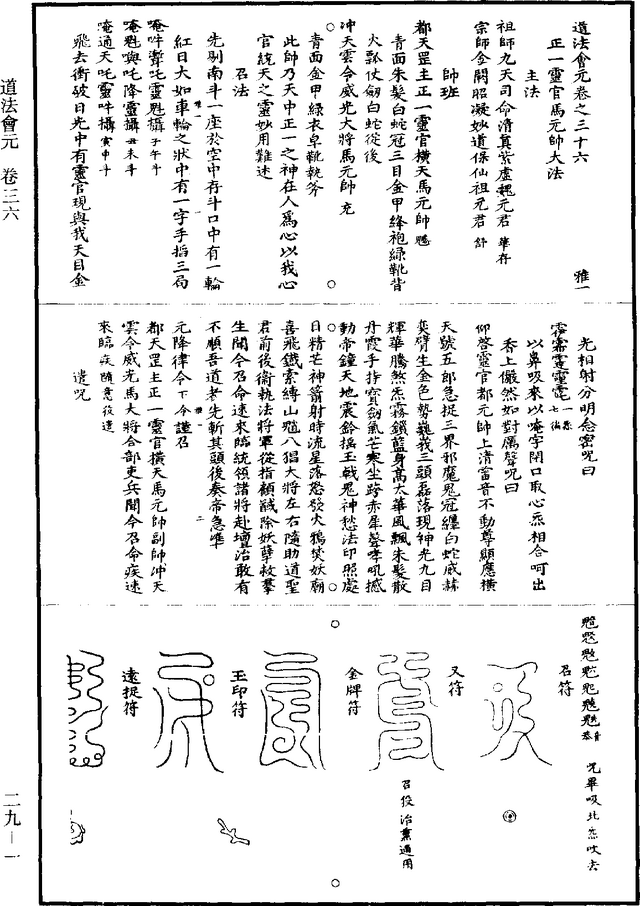 道法會元卷之三十六
雅一
正一靈官馬元帥大法
主法
祖師九天司命清真紫虛魏元君華存
宗師金闕昭凝妙道保仙祖元君舒
帥班
都天罡主正一靈官橫天馬元帥勝
青面朱髮白蛇冠三目金甲絳袍綠靴背
火瓢仗劔白蛇從後
冲天雲令威光大將馬元帥充
青面金甲綠衣皁靴執斧
此師乃天中正一之神在人爲心以我心
官統天之靈妙用難述
召法
先剔南斗一座於空中存斗口中有一輪
紅日大如車輪之狀中有一字手掐三局
唵吽灕吒靈魁攝子午斗
唵魁吒降靈攝丑未斗
唵通天吒靈吽攝寅申斗
飛去衝破日光中有靈官現與我天目金
光相射分明念密呪曰
一氣七徧
以鼻吸來以唵字閉口取心炁相合呵出
香上儼然如對厲聲呪曰
仰啓靈官都元帥上清雷音不動尊顯應橫
天號五郎急捉三界邪魔鬼冠纏白蛇威赫
奕臂生金色勢巍峩三頭磊落現神光九目
輝華騰煞炁霧鐵藍身萬太華風飄朱髮散
丹霞手持寶劔氣芒寒坐跨赤犀聲哮吼撼
動帝鐘天地震鈴摇玉戟鬼神愁法印照處
日精芒神箭射時流星落怒發火鴉焚妖廟
喜飛鐵索縛山魈八猖大將左右隨助道聖
君前後衞執法將軍從指顧馘除妖孽救羣
生聞今召命速來臨統領諸將赴壇治敢有
不順吾道老先斬其頭後奏帝急準
元降律令下令謹召
都天罡主正一靈官橫天馬元帥副帥冲天
雲令威光馬大將合部吏兵聞今召命疾速
來臨疾隨意役遣
遣呪
呪畢吸北炁吹去
召符
又符
召役治祟通用
金牌符
玉印符
遠捉符
道法會元 卷三六
二九－一